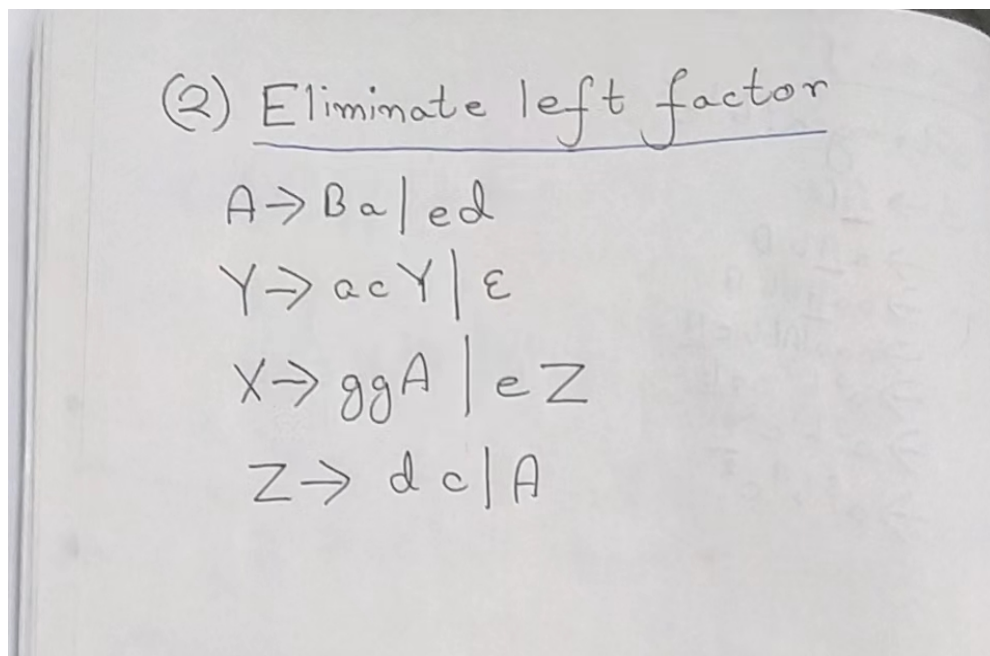 (2) Eliminate left factor
A → Ba | ed
Y → acY | ε
X → ggA | eZ
Z → dc | A